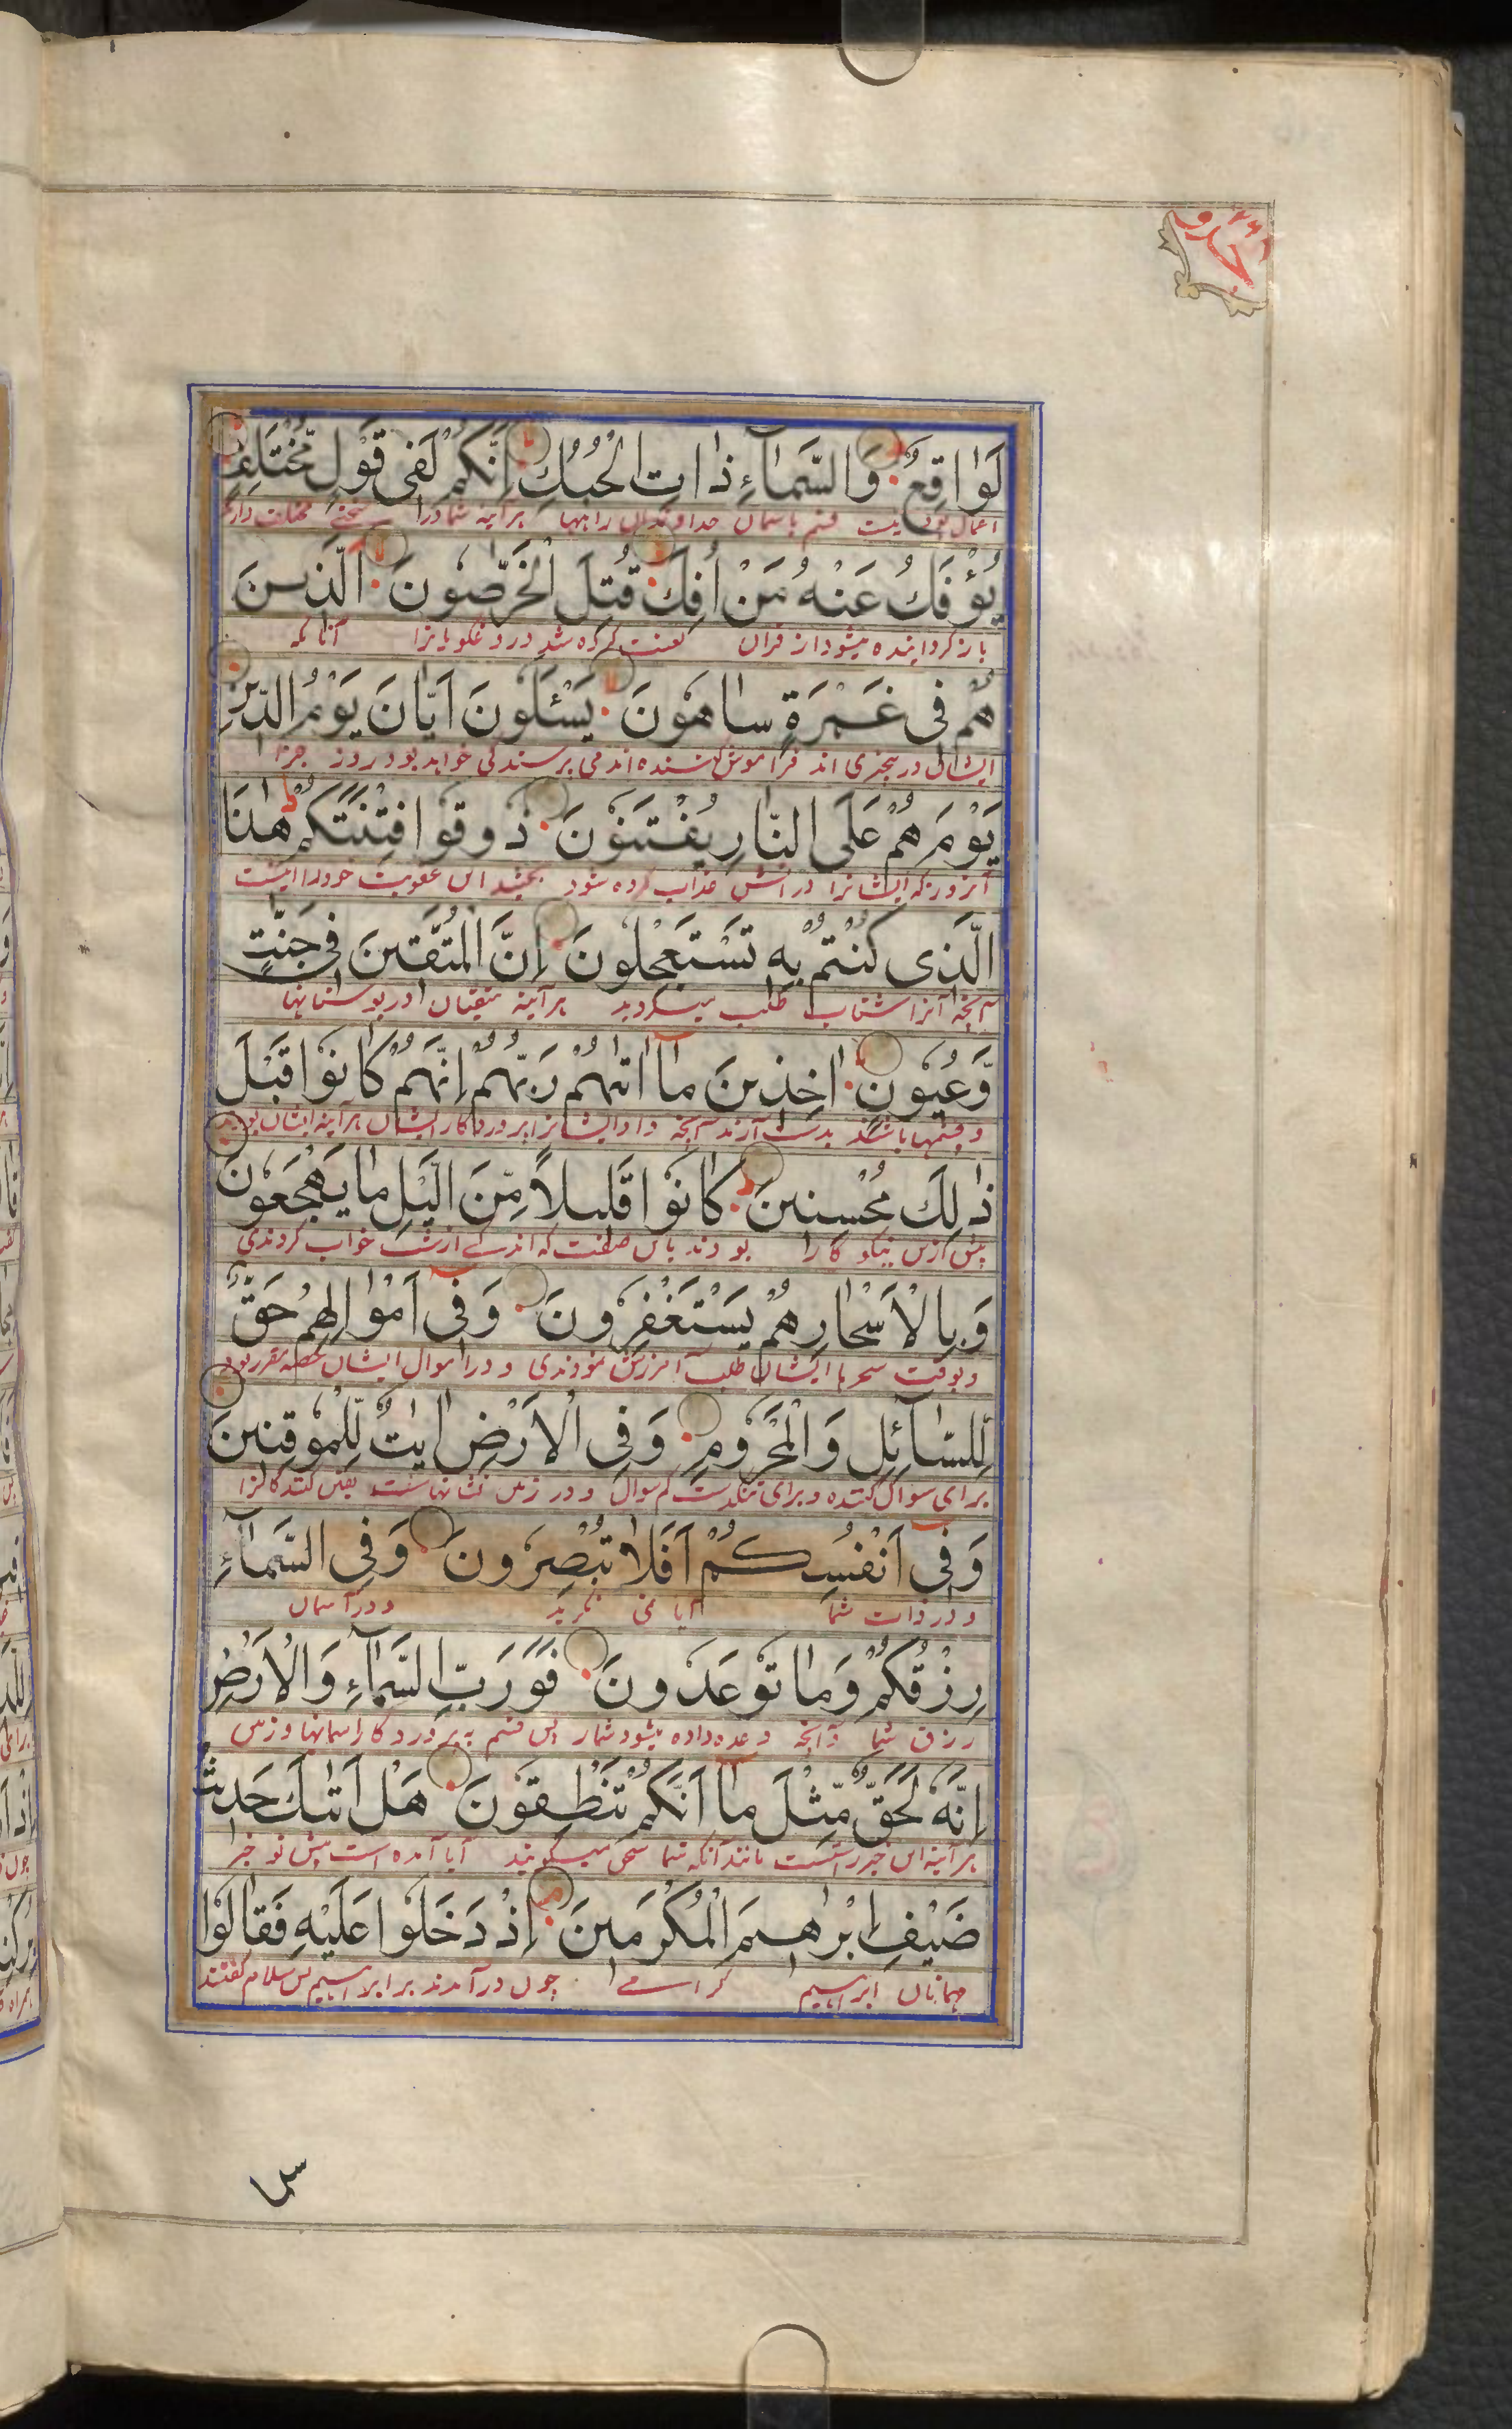 حدو
لَوٰاقِعٌ وَالسَّمَآءِ ذٰاتِ الْحُبُكِ اِنَّكُمْ لَفِى قَوْلٍ مُّخْتَلِفٍ
قسم باسمان خداوندان راهها هرآینه شما در سخنی مختلف دارید
يُؤْفَكُ عَنْهُ مَنْ اُفِكَ قُتِلَ الْخَرّٰصُونَ الَّذِينَ
بازگردانیده میشود از قران لعنت کرده شد دروغگویانرا آنانکه
هُمْ فِى غَمْرَةٍ سٰاهُونَ يَسْئَلُونَ اَيّٰانَ يَوْمُ الدِّينِ
ایشان در بیخبری اند فراموش کننده اند می پرسند کی خواهد بود روز جزا
يَوْمَ هُمْ عَلَى النّٰارِ يُفْتَنُونَ ذُوقُوا فِتْنَتَكُمْ هٰذَا
آنروز که ایشانرا در اتش عذاب کرده شود بچشید این عقوبت خود را اینست
الَّذِى كُنْتُمْ بِهِ تَسْتَعْجِلُونَ اِنَّ الْمُتَّقِينَ فِى جَنّٰتٍ
آنچه آنرا شتاب طلب میکردید هرآینه متقیان در بوستانها
وَّعُيُونٍ اٰخِذِينَ مٰآ اٰتٰهُمْ رَبُّهُمْ اِنَّهُمْ كٰانُوا قَبْلَ
و چشمها باشند بدست آرند آنچه داد ایشانرا پروردگار ایشان هرآینه ایشان بودند
ذٰلِكَ مُحْسِنِينَ كٰانُوا قَلِيلًا مِّنَ الَّيْلِ مٰا يَهْجَعُونَ
پیش ازین نیکو کار بودند باین صفت که اندکی از شب خواب کردندی
وَبِالْاَسْحٰارِ هُمْ يَسْتَغْفِرُونَ وَفِىٓ اَمْوٰالِهِمْ حَقٌّ
و بوقت سحرها ایشان طلب آمرزش نمودندی و در اموال ایشان حصه مقرر بود
لِّلسّٰآئِلِ وَالْمَحْرُومِ وَفِى الْاَرْضِ اٰيٰتٌ لِّلْمُوقِنِينَ
برای سوال کننده و برای تنگدست کم سوال و در زمین نشانهاست یقین کنندگانرا
وَفِىٓ اَنْفُسِكُمْ اَفَلٰا تُبْصِرُونَ وَفِى السَّمَآءِ
و در ذات شما آیا نمی نگرید و در آسمان
رِزْقُكُمْ وَمٰا تُوعَدُونَ فَوَرَبِّ السَّمَآءِ وَالْاَرْضِ
رزق شما و آنچه وعده داده میشود شمارا پس قسم به پروردگار اسمانها و زمین
اِنَّهُ لَحَقٌّ مِّثْلَ مٰآ اَنَّكُمْ تَنْطِقُونَ هَلْ اَتٰىكَ حَدِيثُ
هرآینه این خبر راستست مانند آنکه شما سخن میگویید آیا آمده است پیش تو خبر
ضَيْفِ اِبْرٰهِيمَ الْمُكْرَمِينَ اِذْ دَخَلُوا عَلَيْهِ فَقٰالُوا
مهمانان ابراهیم گرامی چون درآمدند بر ابراهیم پس سلام گفتند
سلا